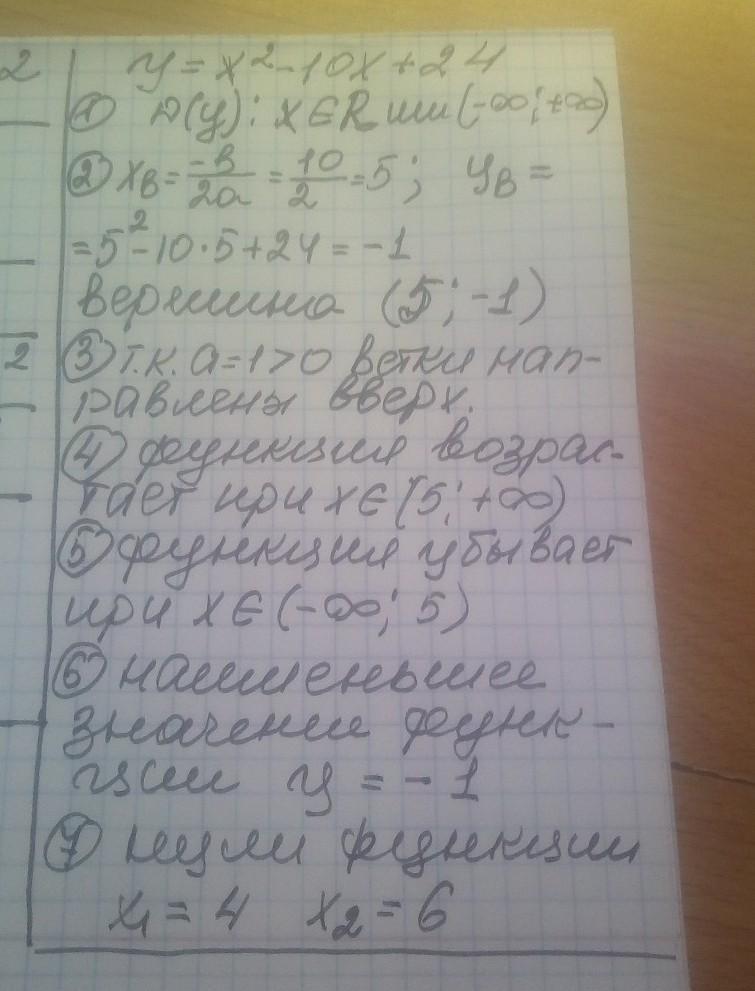 2
y = x² - 10x + 24
① D(y): x ∈ R или (-∞; +∞)
② xв = -в/2a = 10/2 = 5; yв =
= 5² - 10·5 + 24 = -1
вершина (5; -1)
2
③ т.к. a = 1 > 0 ветки нап-
равлены вверх.
④ функция возрас-
тает при x ∈ (5; +∞)
⑤ функция убывает
при x ∈ (-∞; 5)
⑥ наименьшее
значение функ-
ции y = -1
⑦ нули функции
x₁ = 4 x₂ = 6